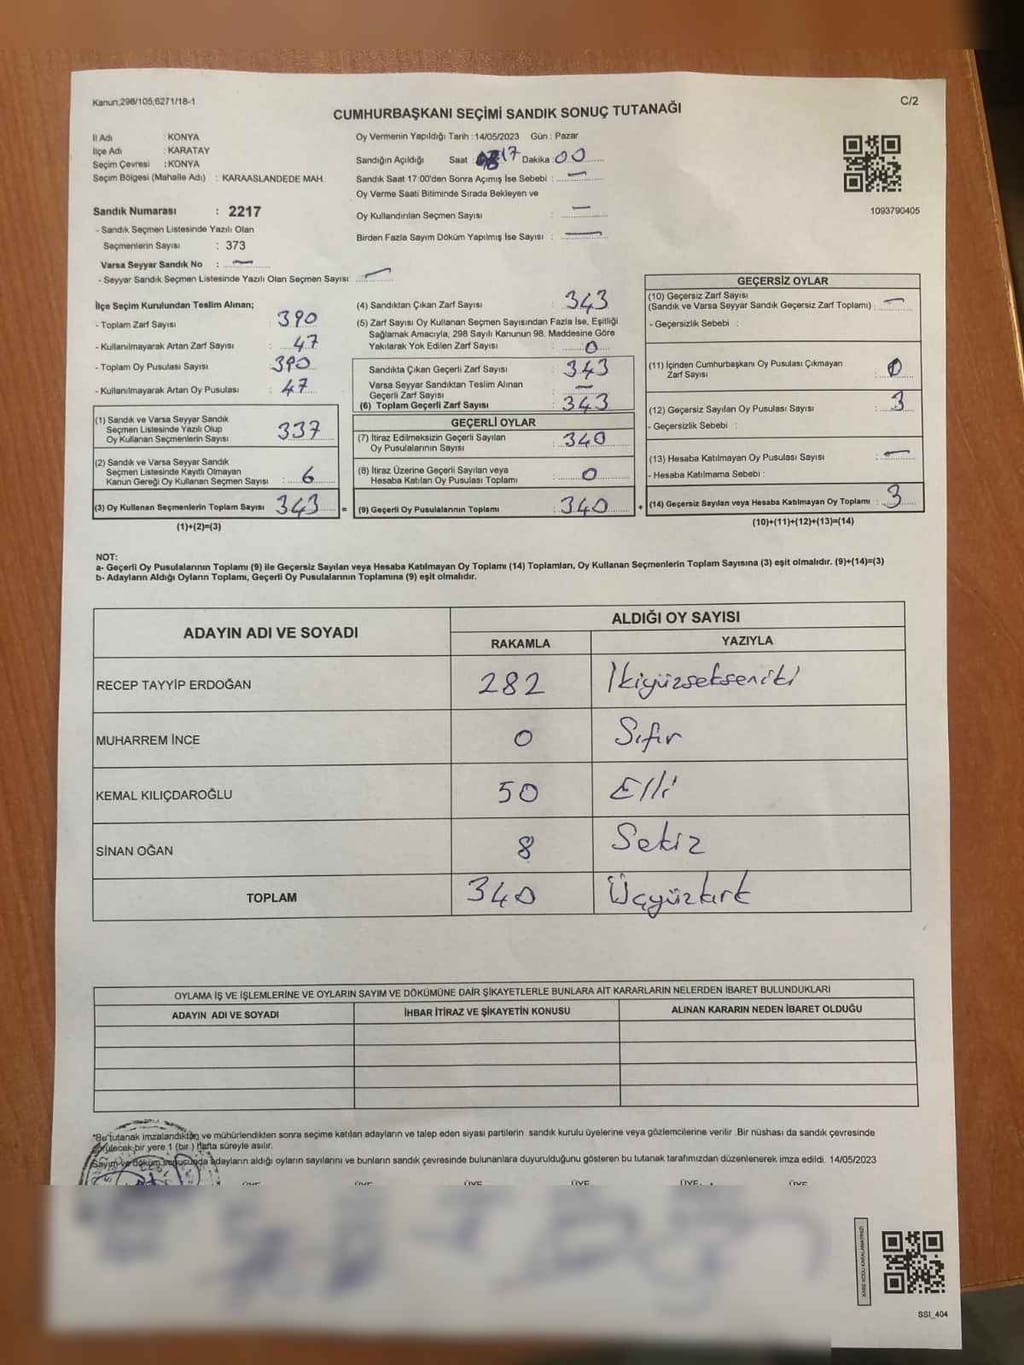 Kanun,298/105,6271/18-1
C/2
CUMHURBAŞKANI SEÇİMİ SANDIK SONUÇ TUTANAĞI
İl Adı : KONYA
İlçe Adı : KARATAY
Seçim Çevresi : KONYA
Seçim Bölgesi (Mahalle Adı) : KARAASLANDEDE MAH.
Sandık Numarası : 2217
- Sandık Seçmen Listesinde Yazılı Olan
Seçmenlerin Sayısı : 373
Varsa Seyyar Sandık No : —
- Seyyar Sandık Seçmen Listesinde Yazılı Olan Seçmen Sayısı : —
Oy Vermenin Yapıldığı Tarih :14/05/2023 Gün : Pazar
Sandığın Açıldığı Saat : 17 Dakika : 00
Sandık Saat 17:00'den Sonra Açmış İse Sebebi : —
Oy Verme Saati Bitiminde Sırada Bekleyen ve
Oy Kullandırılan Seçmen Sayısı : —
Birden Fazla Sayım Döküm Yapılmış İse Sayısı : —
1093790405
İlçe Seçim Kurulundan Teslim Alınan;
- Toplam Zarf Sayısı : 390
- Kullanılmayarak Artan Zarf Sayısı : 47
- Toplam Oy Pusulası Sayısı : 390
- Kullanılmayarak Artan Oy Pusulası : 47
(1) Sandık ve Varsa Seyyar Sandık
Seçmen Listesinde Yazılı Olup
Oy Kullanan Seçmenlerin Sayısı : 337
(2) Sandık ve Varsa Seyyar Sandık
Seçmen Listesinde Kayıtlı Olmayan
Kanun Gereği Oy Kullanan Seçmen Sayısı : 6
(3) Oy Kullanan Seçmenlerin Toplam Sayısı : 343 =
(1)+(2)=(3)
(4) Sandıktan Çıkan Zarf Sayısı : 343
(5) Zarf Sayısı Oy Kullanan Seçmen Sayısından Fazla İse, Eşitliği
Sağlamak Amacıyla, 298 Sayılı Kanunun 98. Maddesine Göre
Yakılarak Yok Edilen Zarf Sayısı : 0
Sandıkta Çıkan Geçerli Zarf Sayısı : 343
Varsa Seyyar Sandıktan Teslim Alınan
Geçerli Zarf Sayısı : —
(6) Toplam Geçerli Zarf Sayısı : 343
GEÇERLİ OYLAR
(7) İtiraz Edilmeksizin Geçerli Sayılan
Oy Pusulasının Sayısı : 340
(8) İtiraz Üzerine Geçerli Sayılan veya
Hesaba Katılan Oy Pusulası Toplamı : 0
(9) Geçerli Oy Pusulalarının Toplamı : 340 +
GEÇERSİZ OYLAR
(10) Geçersiz Zarf Sayısı
(Sandık ve Varsa Seyyar Sandık Geçersiz Zarf Toplamı) : —
- Geçersizlik Sebebi :
(11) İçinden Cumhurbaşkanı Oy Pusulası Çıkmayan
Zarf Sayısı : 0
(12) Geçersiz Sayılan Oy Pusulası Sayısı : 3
- Geçersizlik Sebebi :
(13) Hesaba Katılmayan Oy Pusulası Sayısı : —
- Hesaba Katılmama Sebebi :
(14) Geçersiz Sayılan veya Hesaba Katılmayan Oy Toplamı : 3
(10)+(11)+(12)+(13)=(14)
NOT:
a- Geçerli Oy Pusulalarının Toplamı (9) ile Geçersiz Sayılan veya Hesaba Katılmayan Oy Toplamı (14) Toplamları, Oy Kullanan Seçmenlerin Toplam Sayısına (3) eşit olmalıdır. (9)+(14)=(3)
b- Adayların Aldığı Oyların Toplamı, Geçerli Oy Pusulalarının Toplamına (9) eşit olmalıdır.
ADAYIN ADI VE SOYADI ALDIĞI OY SAYISI
RAKAMLA YAZIYLA
RECEP TAYYİP ERDOĞAN 282 İkiyüzsekseniki
MUHARREM İNCE 0 Sıfır
KEMAL KILIÇDAROĞLU 50 Elli
SİNAN OĞAN 8 Sekiz
TOPLAM 340 Üçyüzkırk
OYLAMA İŞ VE İŞLEMLERİNE VE OYLARIN SAYIM VE DÖKÜMÜNE DAİR ŞİKAYETLERLE BUNLARA AİT KARARLARIN NELERDEN İBARET BULUNDUKLARI
ADAYIN ADI VE SOYADI İHBAR İTİRAZ VE ŞİKAYETİN KONUSU ALINAN KARARIN NEDEN İBARET OLDUĞU
"Bu tutanak imzalandıktan ve mühürlendikten sonra seçime katılan adayların ve talep eden siyasi partilerin sandık kurulu üyelerine veya gözlemcilerine verilir .Bir nüshası da sandık çevresinde
bir yere 1 (bir ) hafta süreyle asılır.
Sayım ve döküm sonucunda adayların aldığı oyların sayılarını ve bunların sandık çevresinde bulunanlara duyurulduğunu gösteren bu tutanak tarafımızdan düzenlenerek imza edildi. 14/05/2023
ÜYE ÜYE ÜYE ÜYE ÜYE ÜYE
SSI_404